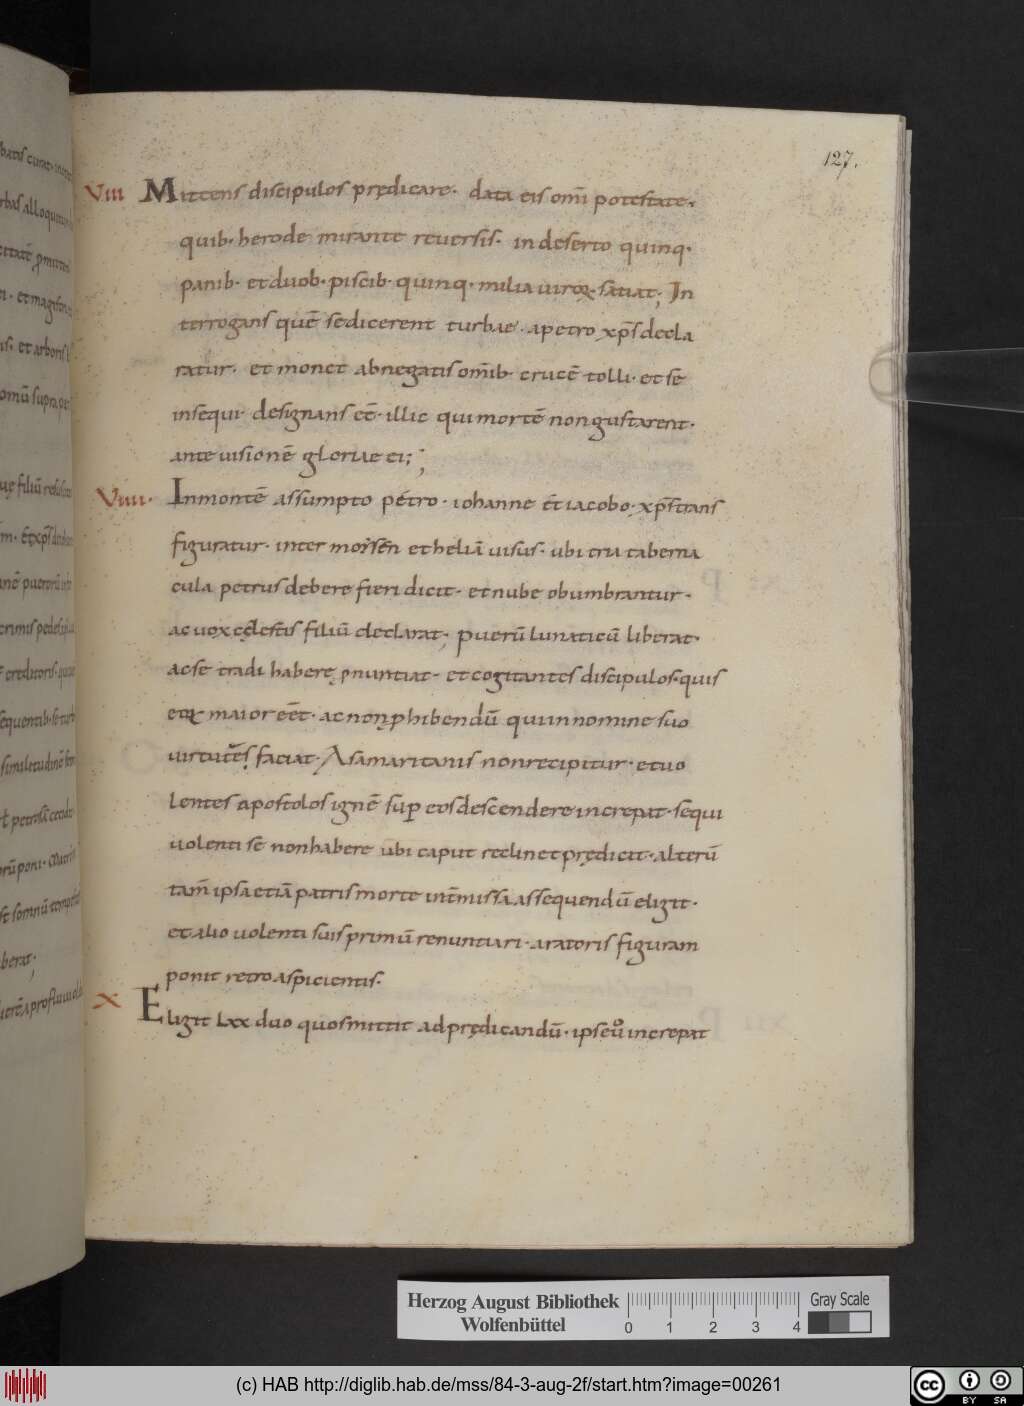 127.
VIII Mittens discipulos prędicare· data eis om̄i potestate·
quib· herode mirante reuersis· in deserto quinq·
panib· et duob· piscib· quinq· milia uiroꝝ· satiat; In
terrogans quē se dicerent turbae· a petro xp̄s decla
ratur· et monet abnegatis om̄ib· crucē tolli· et se
insequi· designans eē· illic qui mortē non gustarent·
ante uisionē gloriae ei;;
VIIII· In monte assumpto petro· iohanne et iacobo· xp̄s trans
figuratur· inter moysen et heliā uisus· ubi tria taberna
cula petrus debere fieri dicit· et nube obumbrantur·
ac uox cęlestis filiū declarat; puerū lunaticū liberat·
ac se tradi habere p̄nuntiat· et cogitantes discipulos· quis
eoꝝ maior eēt· ac non ꝓhibendū qui in nomine suo
uirtutes faciat· A samaritanis non recipitur· et uo
lentes apostolos ignē sup̄ eos descendere increpat· sequi
uolenti se non habere ubi caput reclinet prędicit· alterū
tam̄ ipsa etiā patris morte int̄missa assequendū eligit·
et alio uolenti suis primū renuntiari· aratoris figuram
ponit retro aspicientis·
X Eligit Lxx duo quos mittit ad prędicandū· ipse uº increpat
Herzog August Bibliothek
Wolfenbüttel
0 1 2 3 4
Gray Scale
(c) HAB http://diglib.hab.de/mss/84-3-aug-2f/start.htm?image=00261
cc BY SA